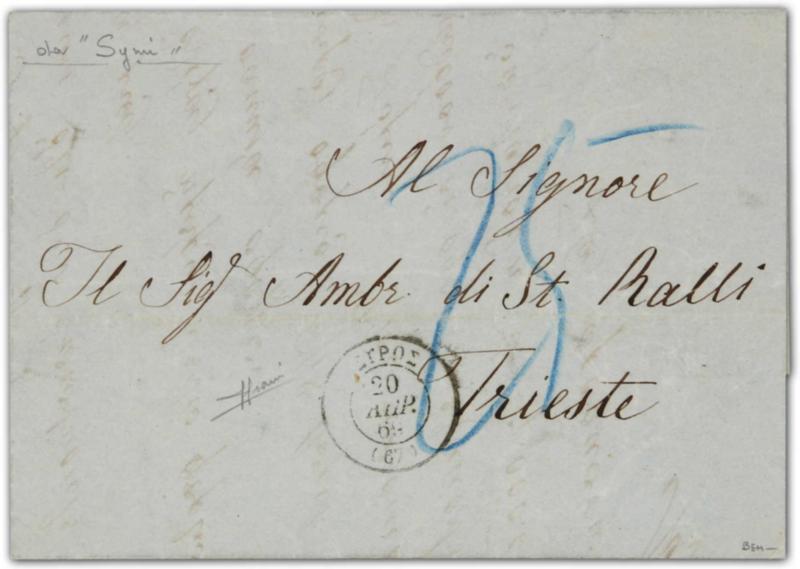 da "Symi"
Al Signore
Il Sigʳ Ambr. di St. Ralli
Trieste
ΣΥΡΟΣ
20
ΑΠΡ.
69
(67)
25
BEM